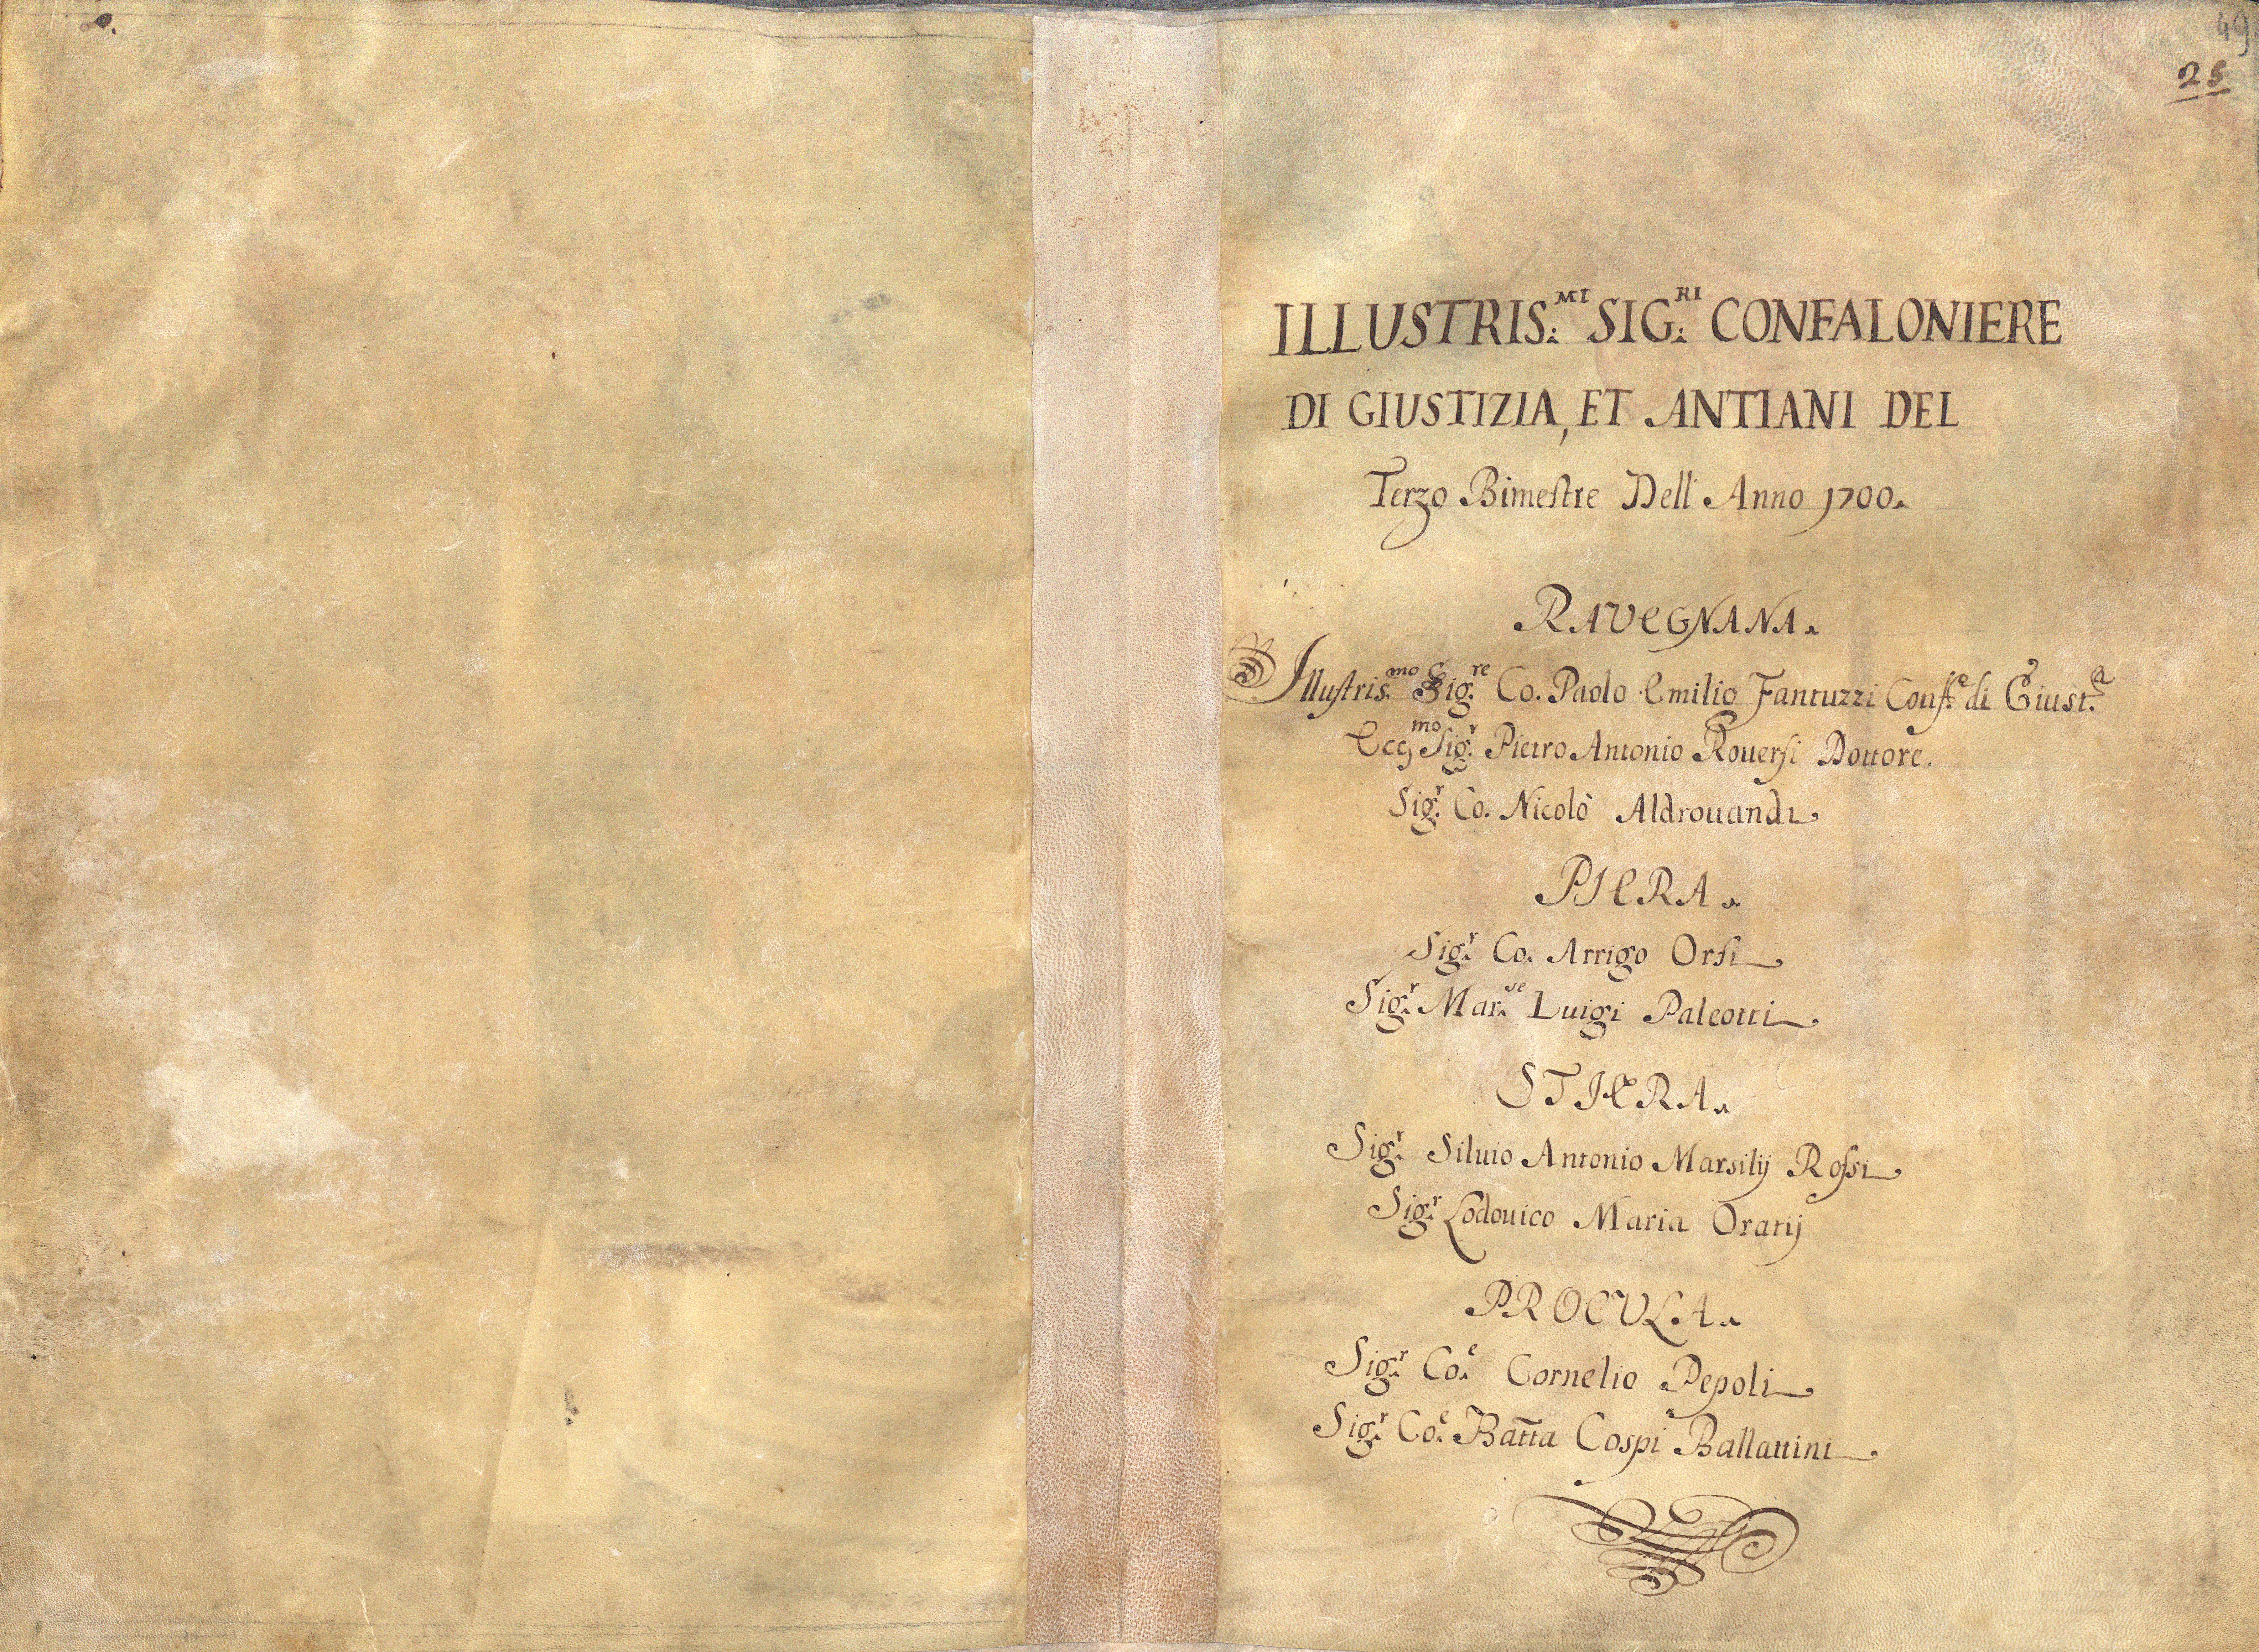 49
25
ILLUSTRIS.MI SIG.RI CONFALONIERE
DI GIUSTIZIA, ET ANTIANI DEL
Terzo Bimestre Dell' Anno 1700.
RAVEGNANA.
Illustris.mo Sig.re Co. Paolo Emilio Fantuzzi Conf.e di Giust.a
Ecc.mo Sig.r Pietro Antonio Rouersi Dottore.
Sig.r Co. Nicolò Aldrouandi
PIERA.
Sig.r Co. Arrigo Orsi
Sig.r Mar.se Luigi Paleotti
STIERA.
Sig.r Siluio Antonio Marsilij Rossi
Sig.r Lodouico Maria Oratij
PROCULA.
Sig.r Co.e Cornelio Pepoli
Sig.r Co.e Batta Cospi Ballattini